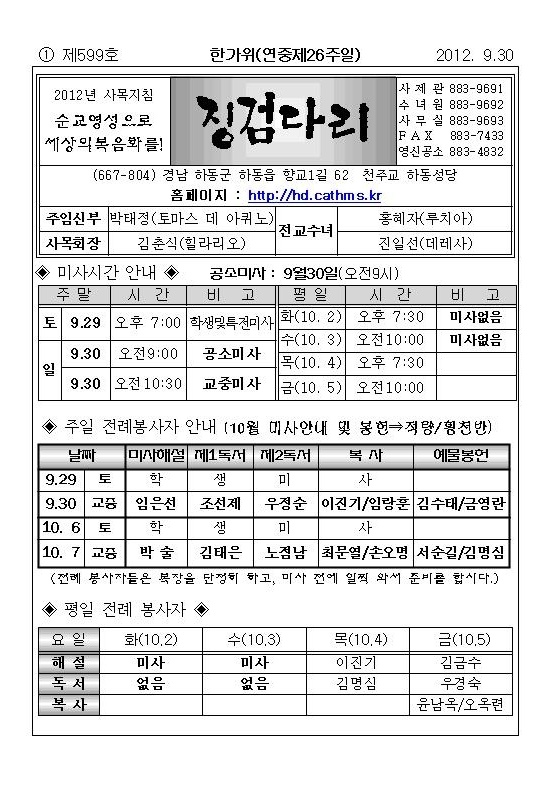 ① 제599호 한가위(연중제26주일) 2012. 9.30
2012년 사목지침
순교영성으로
세상의복음화를!
징검다리
사 제 관 883-9691
수 녀 원 883-9692
사 무 실 883-9693
F A X 883-7433
영신공소 883-4832
(667-804) 경남 하동군 하동읍 향교1길 62 천주교 하동성당
홈페이지 : http://hd.cathms.kr
주임신부 박태정(토마스 데 아퀴노) 전교수녀 홍혜자(루치아)
사목회장 김춘식(힐라리오) 진일선(데레사)
◈ 미사시간 안내 ◈ 공소미사 : 9월30일(오전9시)
주 말 시 간 비 고 평 일 시 간 비 고
토 9.29 오후 7:00 학생및특전미사 화(10. 2) 오후 7:30 미사없음
일 9.30 오전9:00 공소미사 수(10. 3) 오전10:00 미사없음
목(10. 4) 오후 7:30
9.30 오전10:30 교중미사 금(10. 5) 오전10:00
◈ 주일 전례봉사자 안내 (10월 미사안내 및 봉헌⇒적량/횡천반)
날짜 미사해설 제1독서 제2독서 복 사 예물봉헌
9.29 토 학 생 미 사
9.30 교중 임은선 조선제 우정순 이진기/임랑훈 김수태/금영란
10. 6 토 학 생 미 사
10. 7 교중 박 술 김태은 노점남 최문열/손오명 서순길/김명심
(전례 봉사자들은 복장을 단정히 하고, 미사 전에 일찍 와서 준비를 합시다.)
◈ 평일 전례 봉사자 ◈
요 일 화(10.2) 수(10.3) 목(10.4) 금(10.5)
해 설 미사 미사 이진기 김금수
독 서 없음 없음 김명심 우경숙
복 사 윤남옥/오옥련